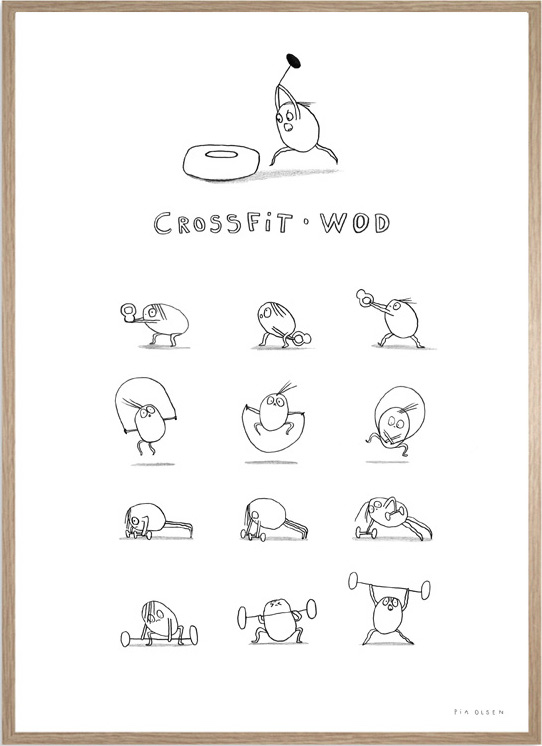 CROSSFiT · WOD
PiA OLSEN